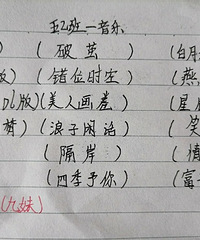 五乙班一音乐
) (破茧) (白月
版) (错位时空) (燕
DL版) (美人画卷) (星
梦) (浪子闲话) (笑
(隔岸) (情
(四季予你) (富
(九妹)